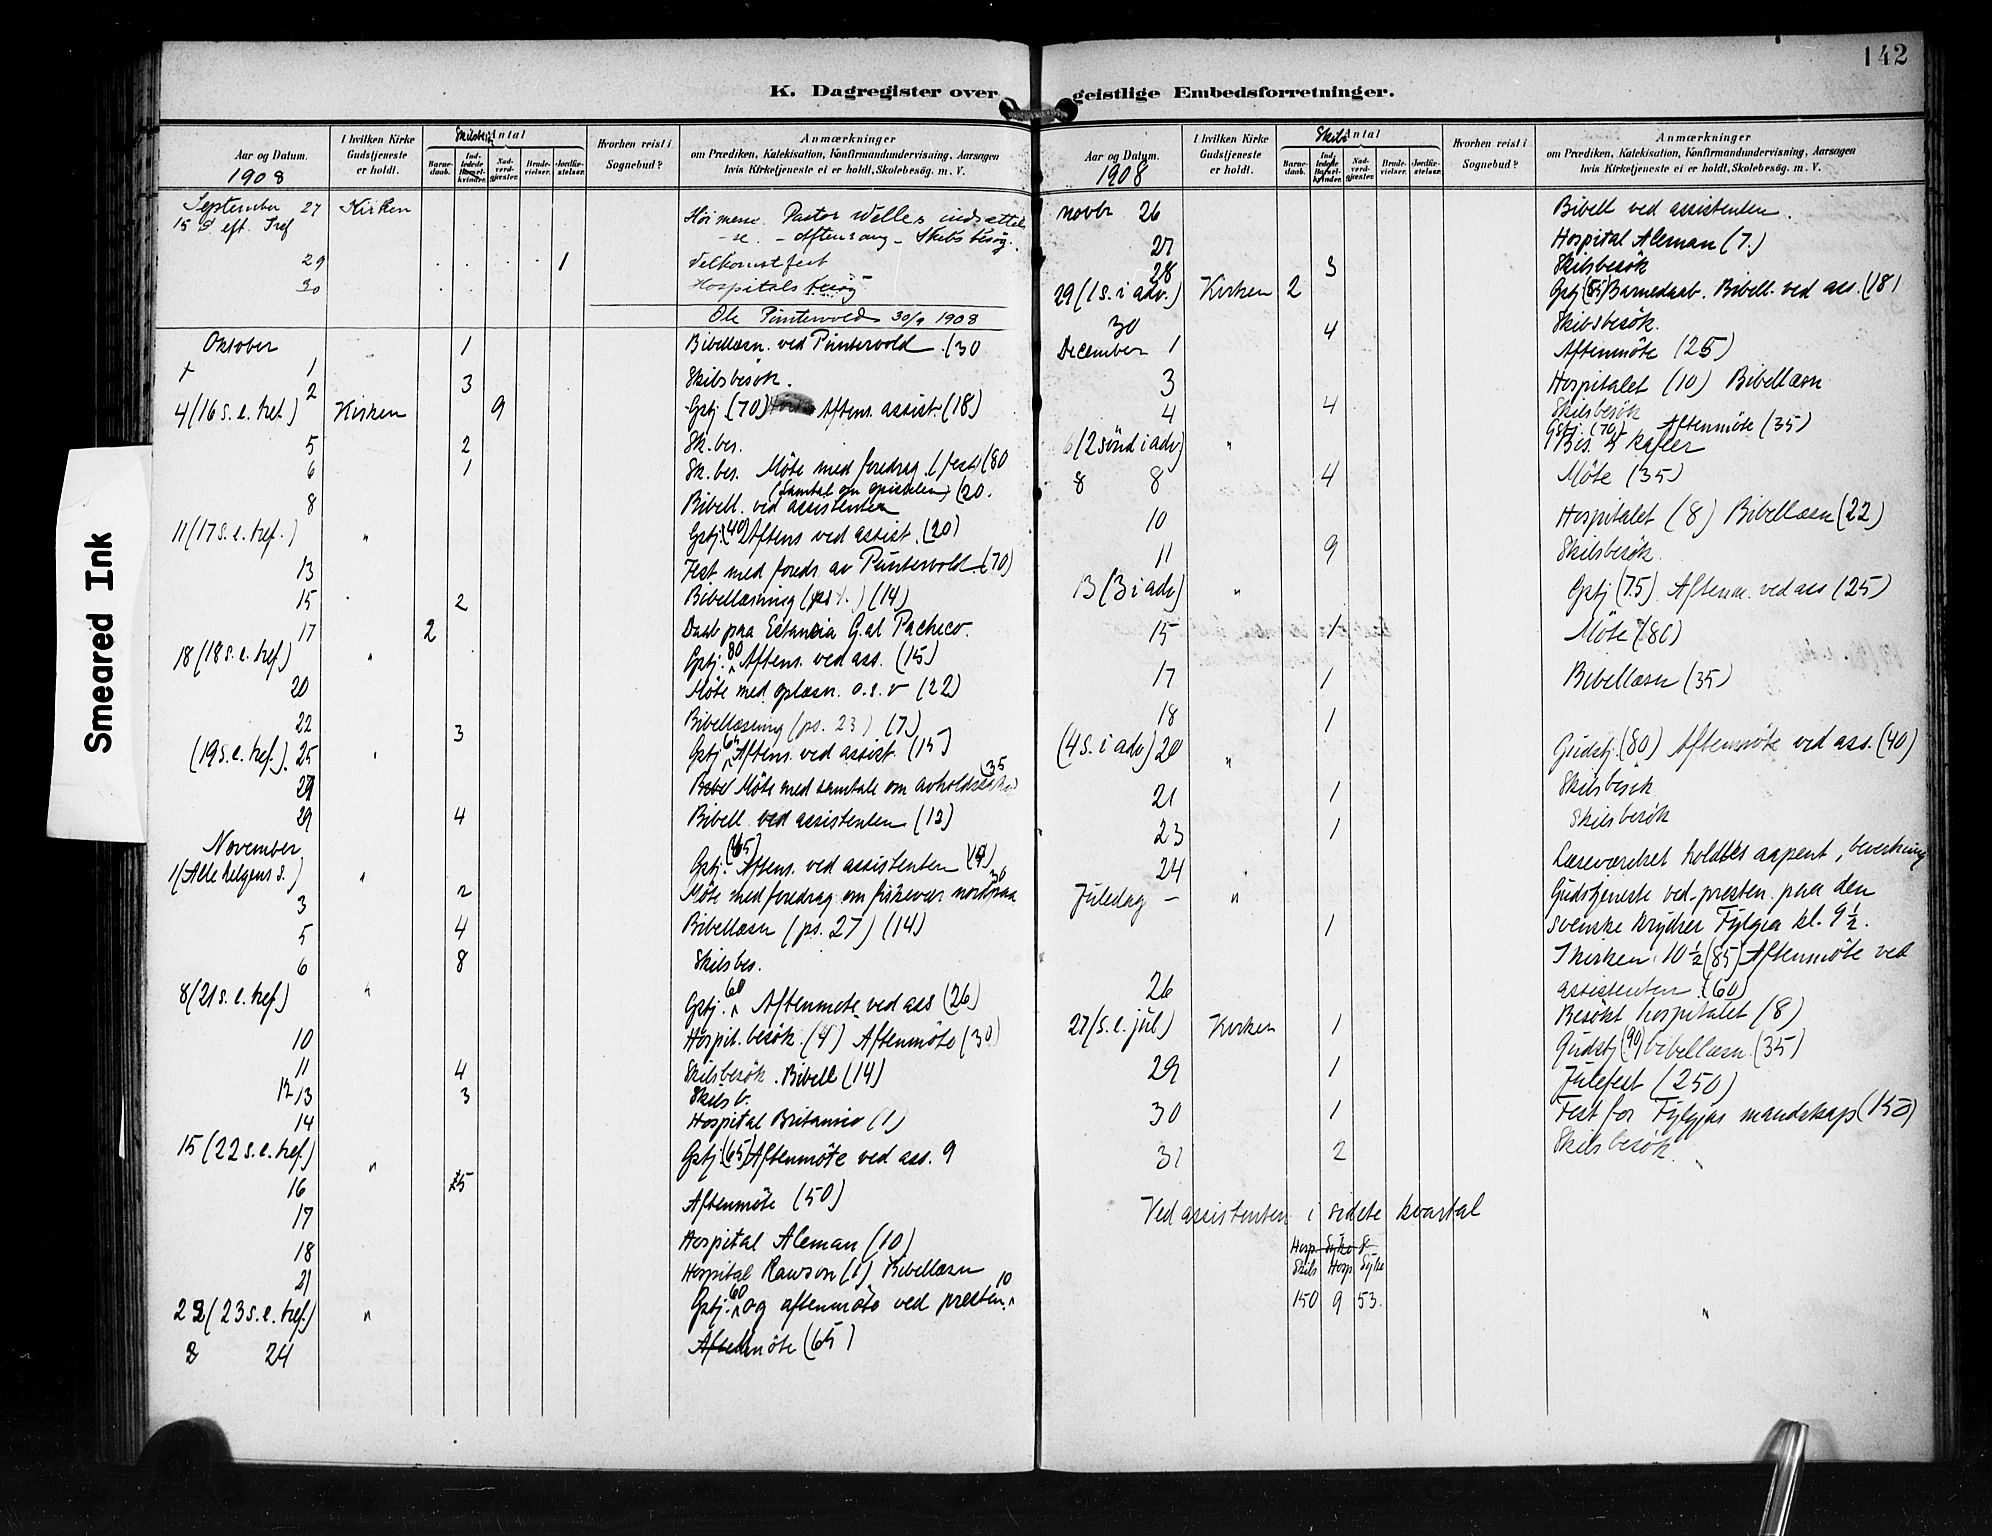 142
K. Dagregister over geistlige Embedsforretninger.
Smeared Ink
Aar og Datum.
1908
I hvilken Kirke Gudstjeneste er holdt.
Antal
Barnedaab.
Indledede Barselkvinder.
Nadverdgjæster.
Brudevielser.
Jordfæstelser.
Hvorhen reist i Sognebud?
Anmærkninger
om Prædiken, Katekisation, Konfirmandundervisning, Aarsagen
hvis Kirketjeneste ei er holdt, Skolebesög. m. V.
September 27 Kirken Höimesse. Pastor Welles indsættel
15 S eft. Tref -se. - Aftensang - Skibsbesög.
29 1 Velkomstfest
30 Hospitalsbesög
Ole Püntervold 30/9 1908
Oktober
1 1 Bibellæsn. ved Püntervold (30
2 3 Skibsbesök.
4 (16 s. e. tref.) Kirken 9 Gstj (70) Aftens. assist. (18)
5 2 Sk. bes.
6 1 Sk. bes. Möte med foredrag (fest) (80
8 Bibell. ved assistenten (Samtal om epistelen) (20.
11 (17 s. e. tref.) " Gstj. (40) Aftens ved assist. (20)
13 Fest med foredr. av Püntervold (70)
15 2 Bibellæsning (14)
17 2 Daab paa Estancia G.al Pacheco.
18 (18 s. e. tref.) " Gstj. 80 Aftens. ved ass. (15)
20 Möte med oplæsn. o. s. v (22)
22 3 Bibellæsning (ps. 23) (7)
(19 s. e. tref.). 25 " Gstj. Aftens. ved assist. (15)
27 Möte med samtale om (35
29 4 Bibell. ved assistenten (13)
November
1 (Allehelgens s.) " Gstj. Aftens. ved assistenten
3 2 Möte med foredrag om fiskevær nordpaa 30
5 4 Bibellæsn (ps. 27) (14)
6 8 Skibsbes.
8 (21 s. e. tref.) " Gstj. 60 Aftenmöte ved ass (26)
10 Hospit. besök. (4) Aftenmöte (30)
11 4 Skibsbesök. Bibell (14)
12 13 3 Skibsb.
14 Hospital Britanico (1)
15 (22 s. e. tref.) " Gstj. (65) Aftenmöte ved ass. 9
16 5
17 Aftenmöte (50)
18 Hospital Aleman (10)
21 Hospital Rawson (1) Bibellæsn
22 (23 s. e. tref.) " Gstj. 60 og aftenmöte ved presten 10
24 Aftenmöte (65)
Aar og Datum.
1908
I hvilken Kirke Gudstjeneste er holdt.
Skibs Antal
Barnedaab.
Indledede Barselkvinder.
Nadverdgjæster.
Brudevielser.
Jordfæstelser.
Hvorhen reist i Sognebud?
Anmærkninger
om Prædiken, Katekisation, Konfirmandundervisning, Aarsagen
hvis Kirketjeneste ei er holdt, Skolebesög. m. V.
Novbr 26 Bibell ved assistenten.
27 Hospital Aleman (7.)
28 3 Skibsbesök
29 (1 s. i adv.) Kirken 2 Gstj Barnedaab. Bibell. ved ass. (18)
30 4 Skibsbesök.
December 1 Aftenmöte (25)
3 Hospitalet (10) Bibellæsn
4 4 Skibsbesök
6 (2 sönd i adv) " Gstj. (70) Aftenmöte (35)
8 8 4 Möte (35)
10 Hospitalet (8) Bibellæsn (22)
11 9 Skibsbesök.
13 (3 i adv) " Gstj (75). Aftenm. ved ass (25)
15 1 Möte (80)
17 1 Bibellæsn (35)
18 1
(4 s. i adv) 20 " Gudstj. (80) Aftenmöte ved ass. (40)
21 1 Skibsbesök
23 1 Skibsbesök
24 Læseværelset holdtes aapent, bevertning
Juledag - " 1 Gudstjeneste ved presten paa den
svenske krydser Fylgia kl. 9 1/2.
I kirken 10 1/2 (85) Aftenmöte ved
assistenten (60)
26 Besökt hospitalet (8)
27 (s. e. jul) Kirken 1 Gudstj (90) bibellæsn. (35)
29 1 Julefest (250)
30 1 Fest for Fylgias mandskap (150)
31 2 Skibsbesök.
Ved assistenten i sidste kvartal
Skibs Hosp. Syke
150 9 53.